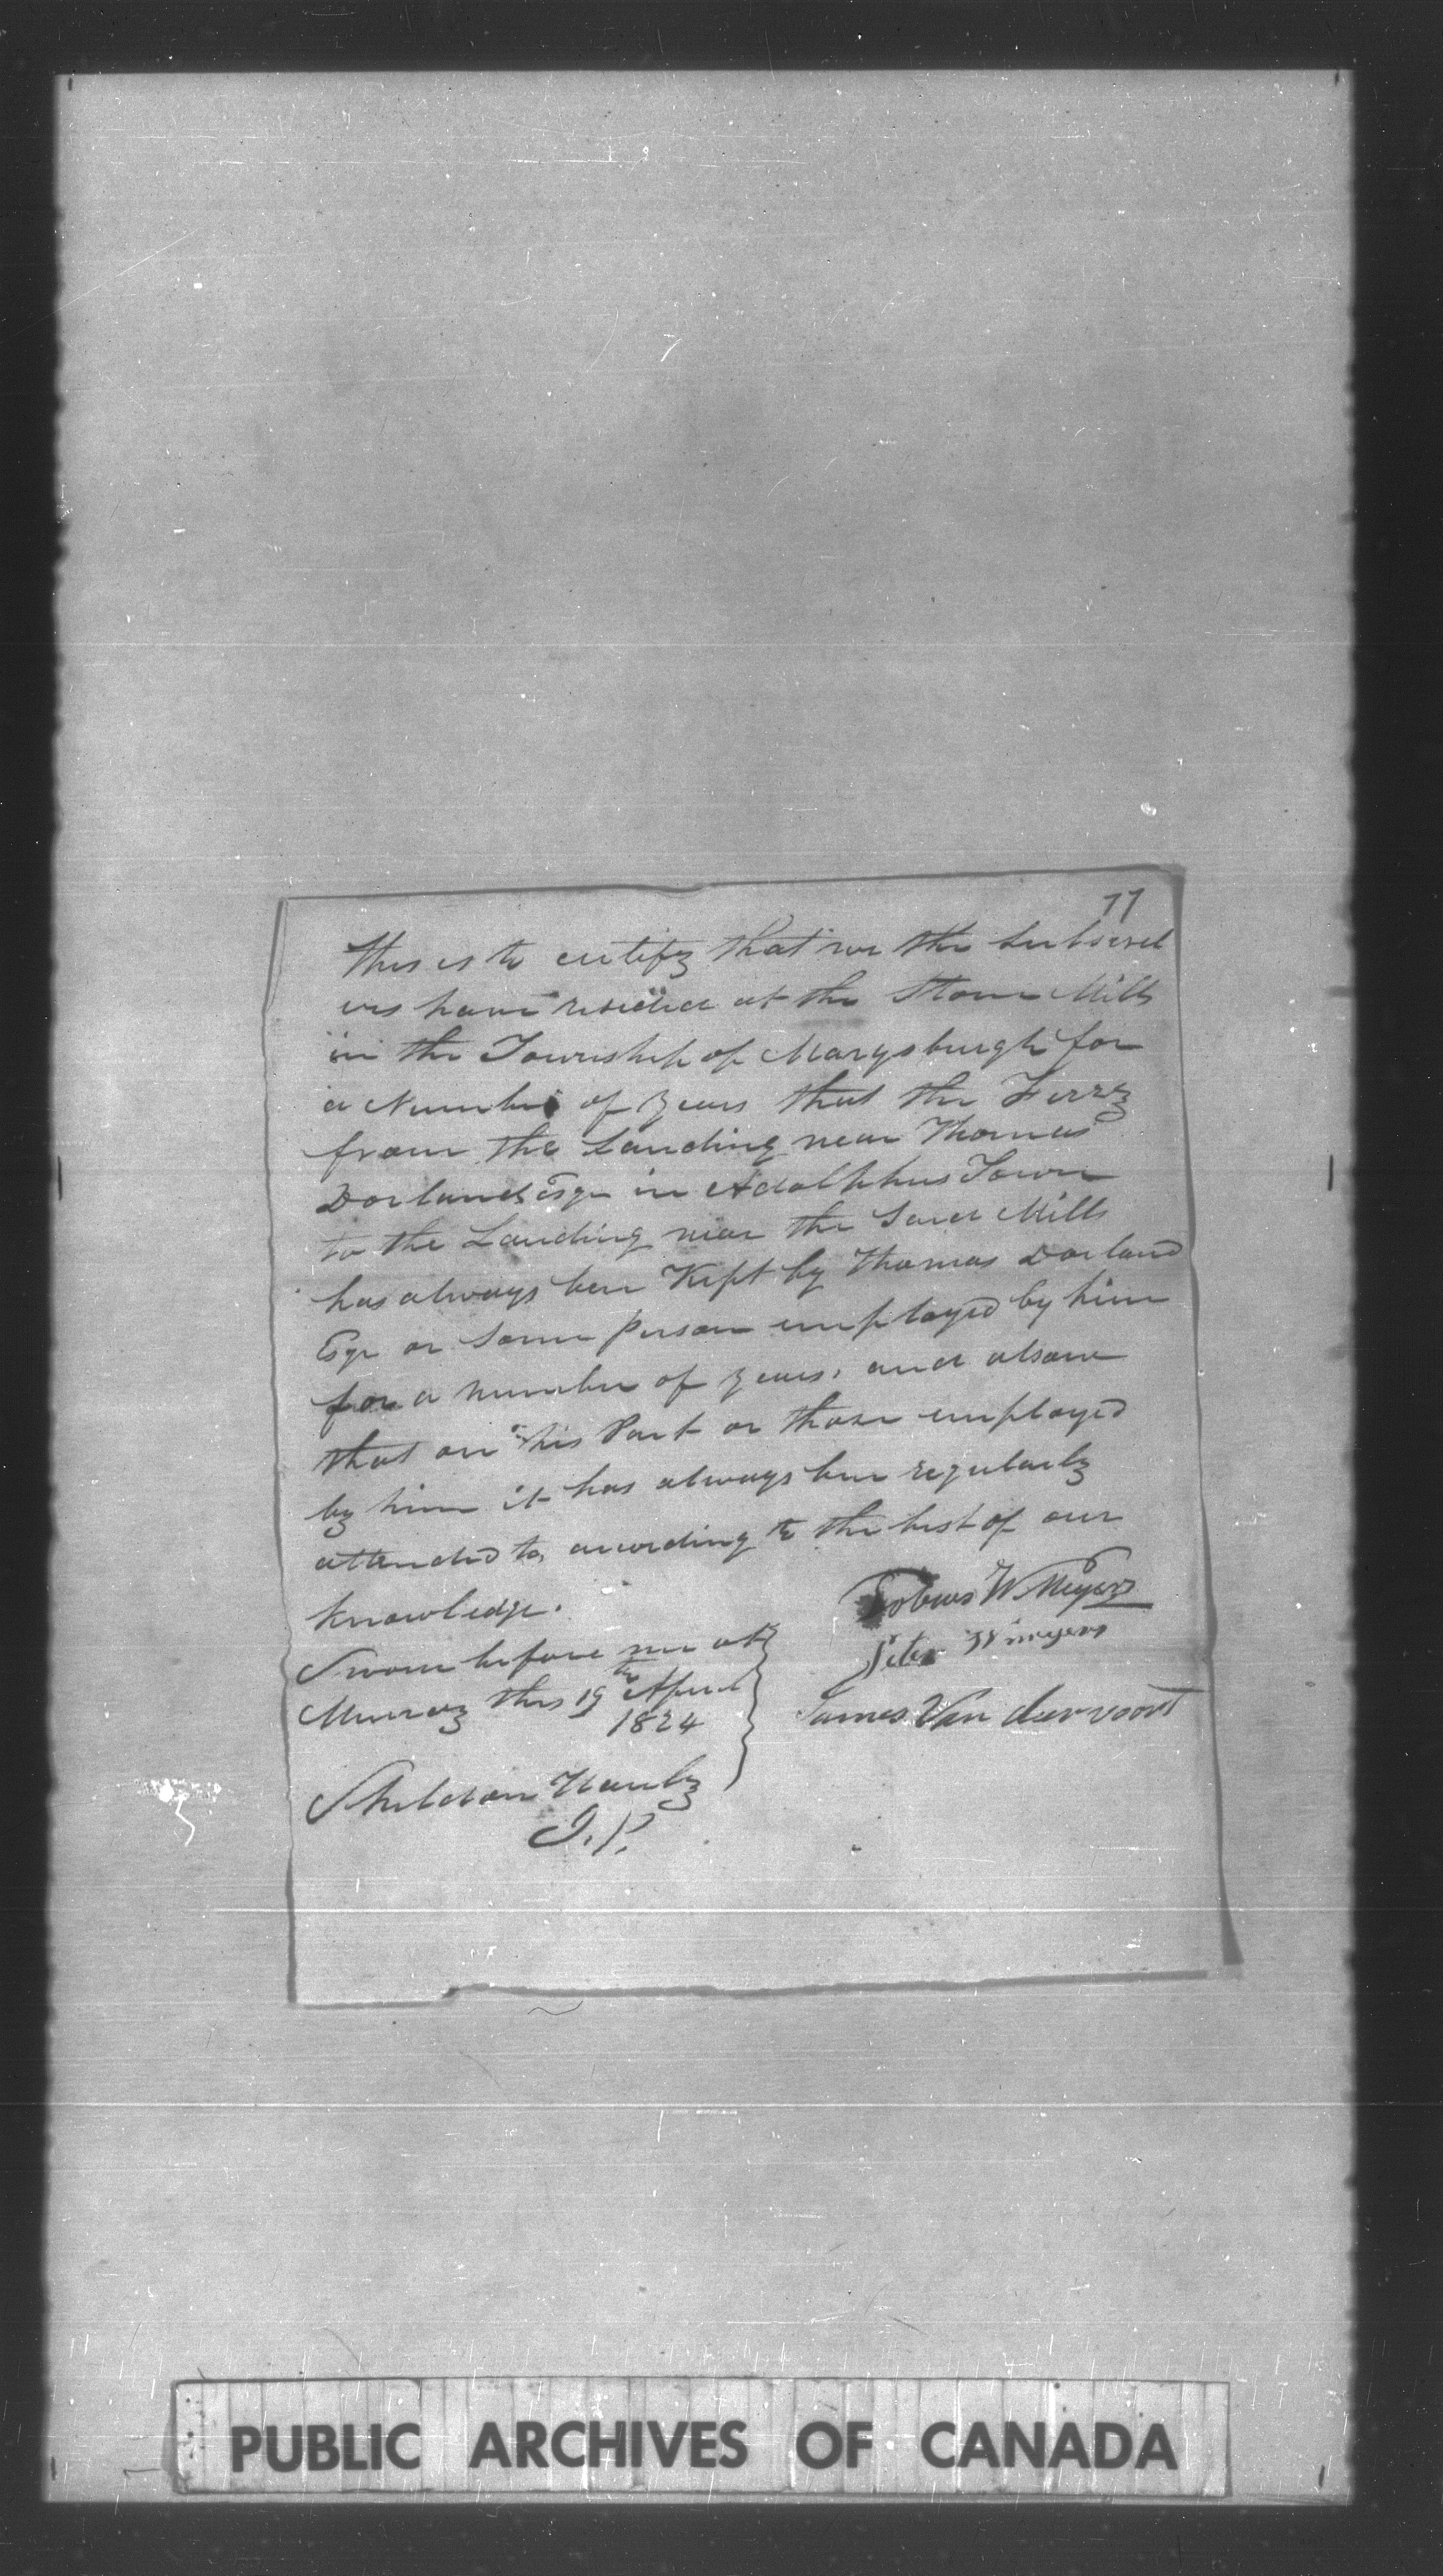 77
This is to certify that we the Subscrib
ers have resided at the Stone Mills
in the Township of Marysburgh for
a Number of years that the Ferry
from the Landing near Thomas
Dorlands Esqr in Adolphus Town
to the Landing near the Said Mills
has always ben Kept by Thomas Dorland
Esqr or Some person employed by him
for a number of years, and alsow
that on his Part or those employed
by him it has always ben regularly
attended to, according to the best of our
knowledge.
Tobias W Meyers
Peter W meyers
James Van dervoort
Sworn before me at
Murray this 19th April
1824
Sheldon Hawley
J.P.
PUBLIC ARCHIVES OF CANADA